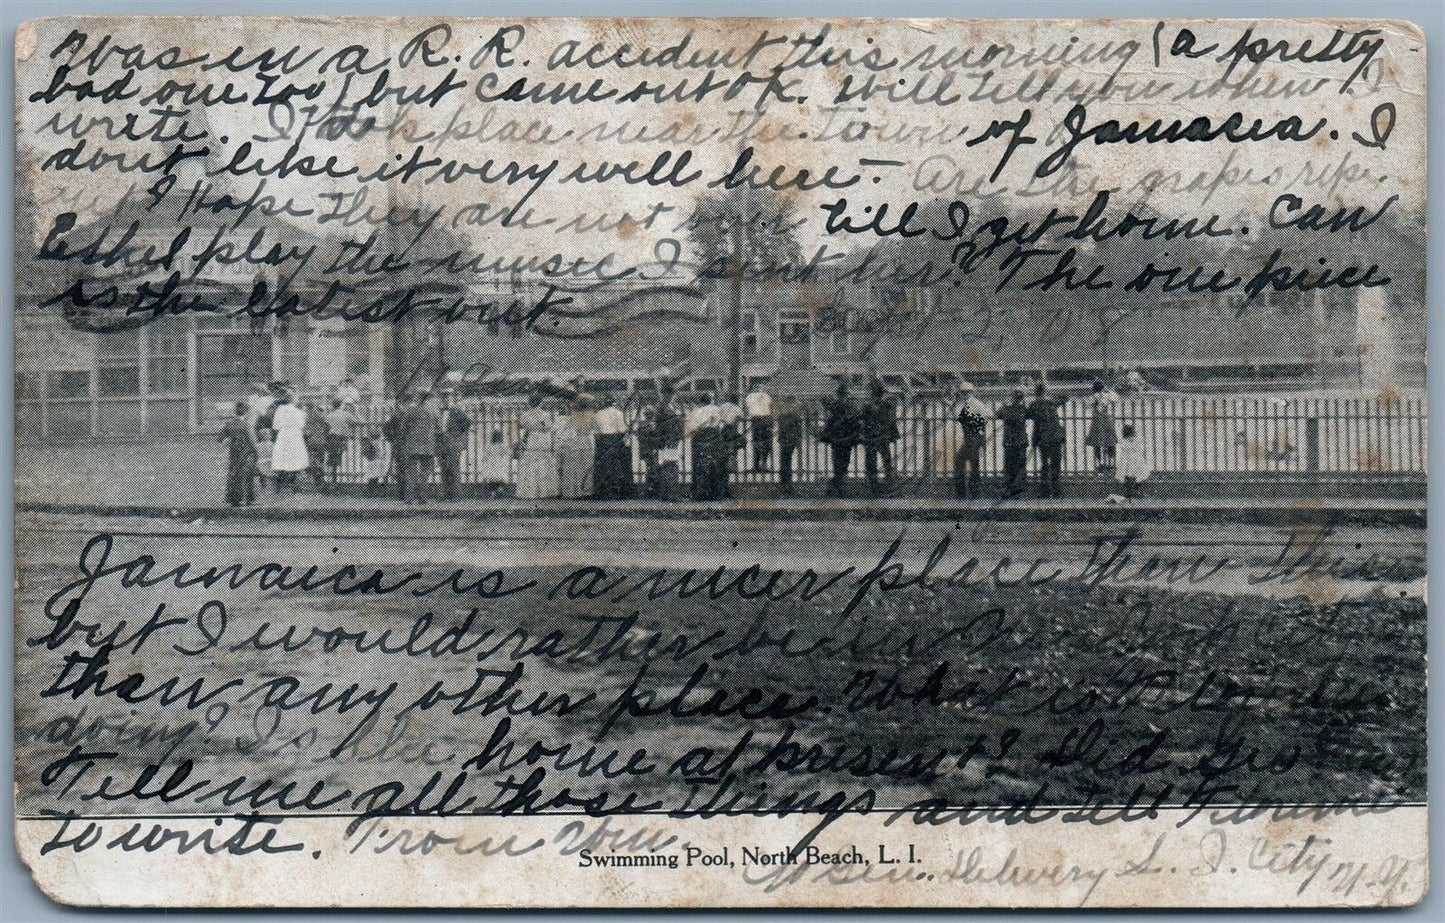 Was in a R. R. accident this morning (a pretty
bad one too) but came out OK. Will tell you when I
write. It took place near the town of Jamacia. I
dont like it very well here. Are the grapes ripe
yet? I Hope they are not till I get home. Can
Eshel play the music I sent her? The one piece
is the latest out.
Sept 2, 08
Jamaica is a nicer place than this
but I would rather be in New York City
than any other place. What is
doing? Is he home at present? Did Geo
Tell me all those things and tell
to write. From
Swimming Pool, North Beach, L. I.
Gen. Delivery L. I. City N.Y.